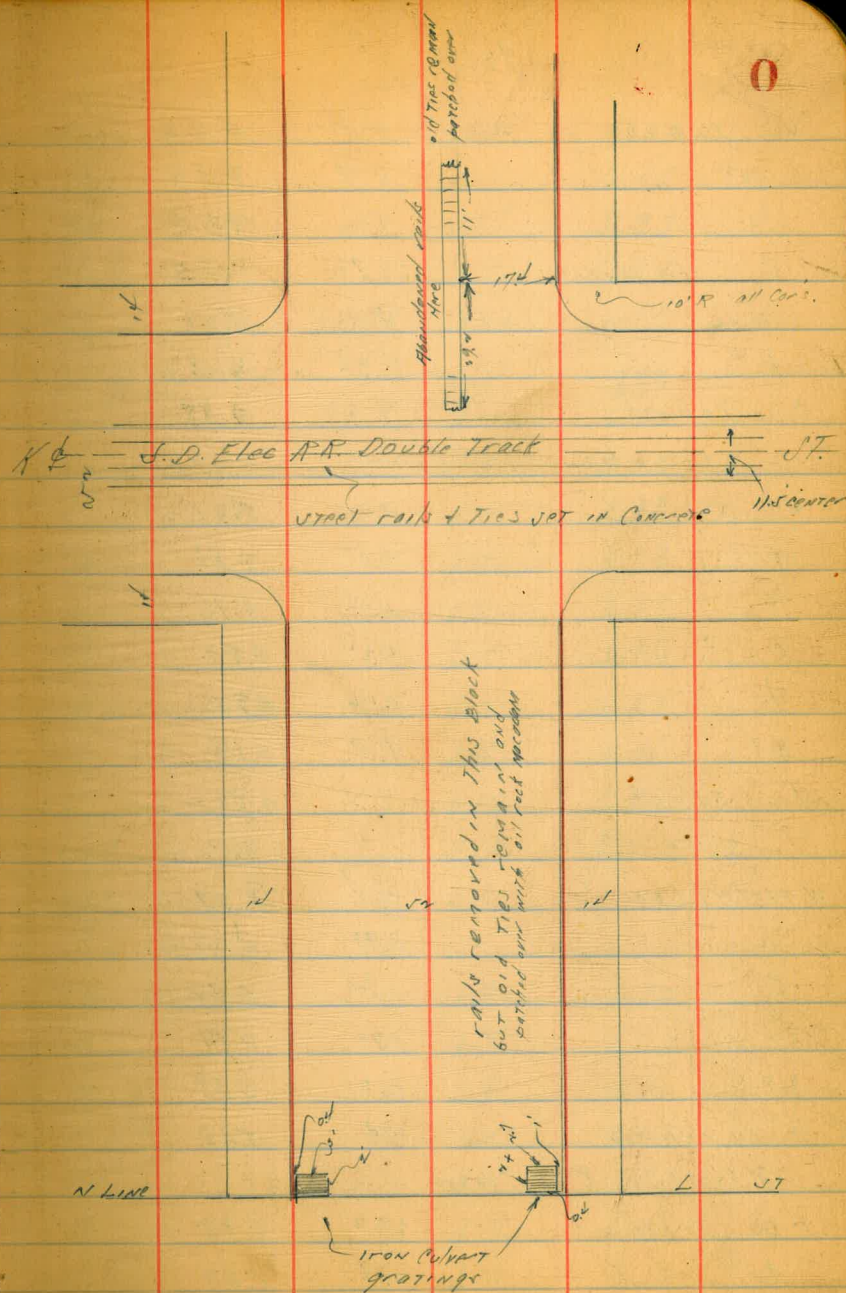 0
old Ties remain
patched over
Abandoned rails
Here
11'
17.4
39.4
14
10' R all Cor's.
K ℄ S.D. Elec R.R. Double Track ST.
52
11.5 center
Steel rails & Ties set in Concrete
14
rails removed in This Block
but old Ties remain and
patched over with oil rock Macadam
14
52
14
0.2
3'
2'
1'
0.2
N LINE L ST
Iron Culvert
gratings